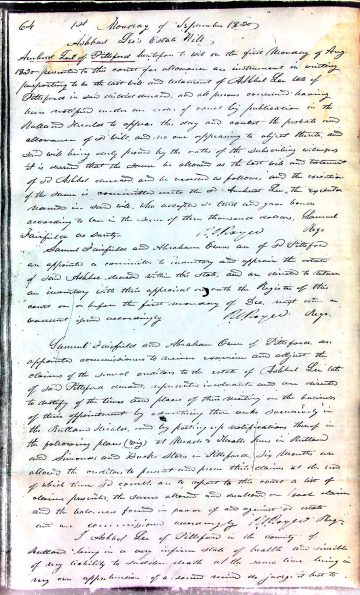 64 1st Monday of September 1820
Ashbel Lee's Estate Will
Amherst Lee of Pittsford heretofore to wit on the first Monday of Aug.
1820 presented to this court for allowance an instrument in writing
purporting to be the last will and testament of Ashbel Lee late of
Pittsford in said district deceased, and all persons concerned having
been notified under a order of court by publication in the
Rutland Herald to appear this day and contest the probate and
allowance of sd will, and no one appearing to object thereto, and
said will being duly proved by the oaths of the subscribing witnesses
it is decreed that the same be allowed as the last will and testament
of sd Ashbel deceased, and be recorded as follows, and the execution
of the same is committed unto the sd Amherst Lee, the executor
named in said will, who accepts sd trust and gave bonds
according to law in the sum of three thousand dollars, Samuel
Fairfield as surety. Regr.
Samuel Fairfield and Abraham Owen are of sd Pittsford
are appointed a committee to inventory and apprise the estate
of said Ashbel deceased within this state, and are directed to return
an inventory with their appraisal on oath the Register of this
court on or before the first monday of Dec. next
warrant issued accordingly Regr.
Samuel Fairfield and Abraham Owen of Pittsford, are
appointed commissioners to receive examine and adjust the
claims of the several creditors to the estate of Ashbel Lee late
of said Pittsford deceased, represented insolvent and are directed
to notify of the times and places of their meeting on the business
of their appointment by advertising three weeks successively in
the Rutland Herald, and by posting up notifications thereof in
the following places (viz) at Inns in Rutland
and Simonds and Stores in Pittsford, Six Months are
allowed the creditors to present and prove their claims at the end
of which time sd comrs. are to report to this court a list of
claims presented, the sums allowed and disallowed on each claim
and the balances found in favor of and against sd estate
and are commissioned accordingly Regr.
I Ashbel Lee of Pittsford in the county of
Rutland being in a very infirm state of health and sensible
of my liability to sudden death at the same time being in
my own apprehension of a sound mind do judge it best to